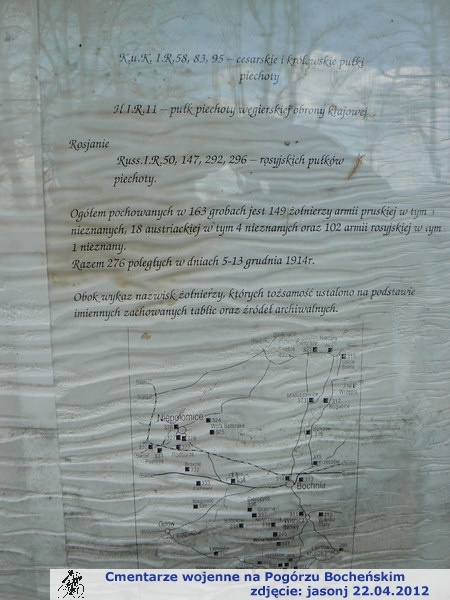 K.u.K. I.R.58, 83, 95 – cesarskie i królewskie pułki
piechoty
H.I.R.11 – pułk piechoty węgierskiej obrony krajowej.
Rosjanie
Russ.I.R.50, 147, 292, 296 – rosyjskich pułków
piechoty.
Ogółem pochowanych w 163 grobach jest 149 żołnierzy armii pruskiej w tym
nieznanych, 18 austriackiej w tym 4 nieznanych oraz 102 armii rosyjskiej w tym
1 nieznany.
Razem 276 poległych w dniach 5-13 grudnia 1914r.
Obok wykaz nazwisk żołnierzy, których tożsamość ustalono na podstawie
imiennych zachowanych tablic oraz źródeł archiwalnych.
Niepołomice
Bochnia
Gdów
Cmentarze wojenne na Pogórzu Bocheńskim
zdjęcie: jasonj 22.04.2012